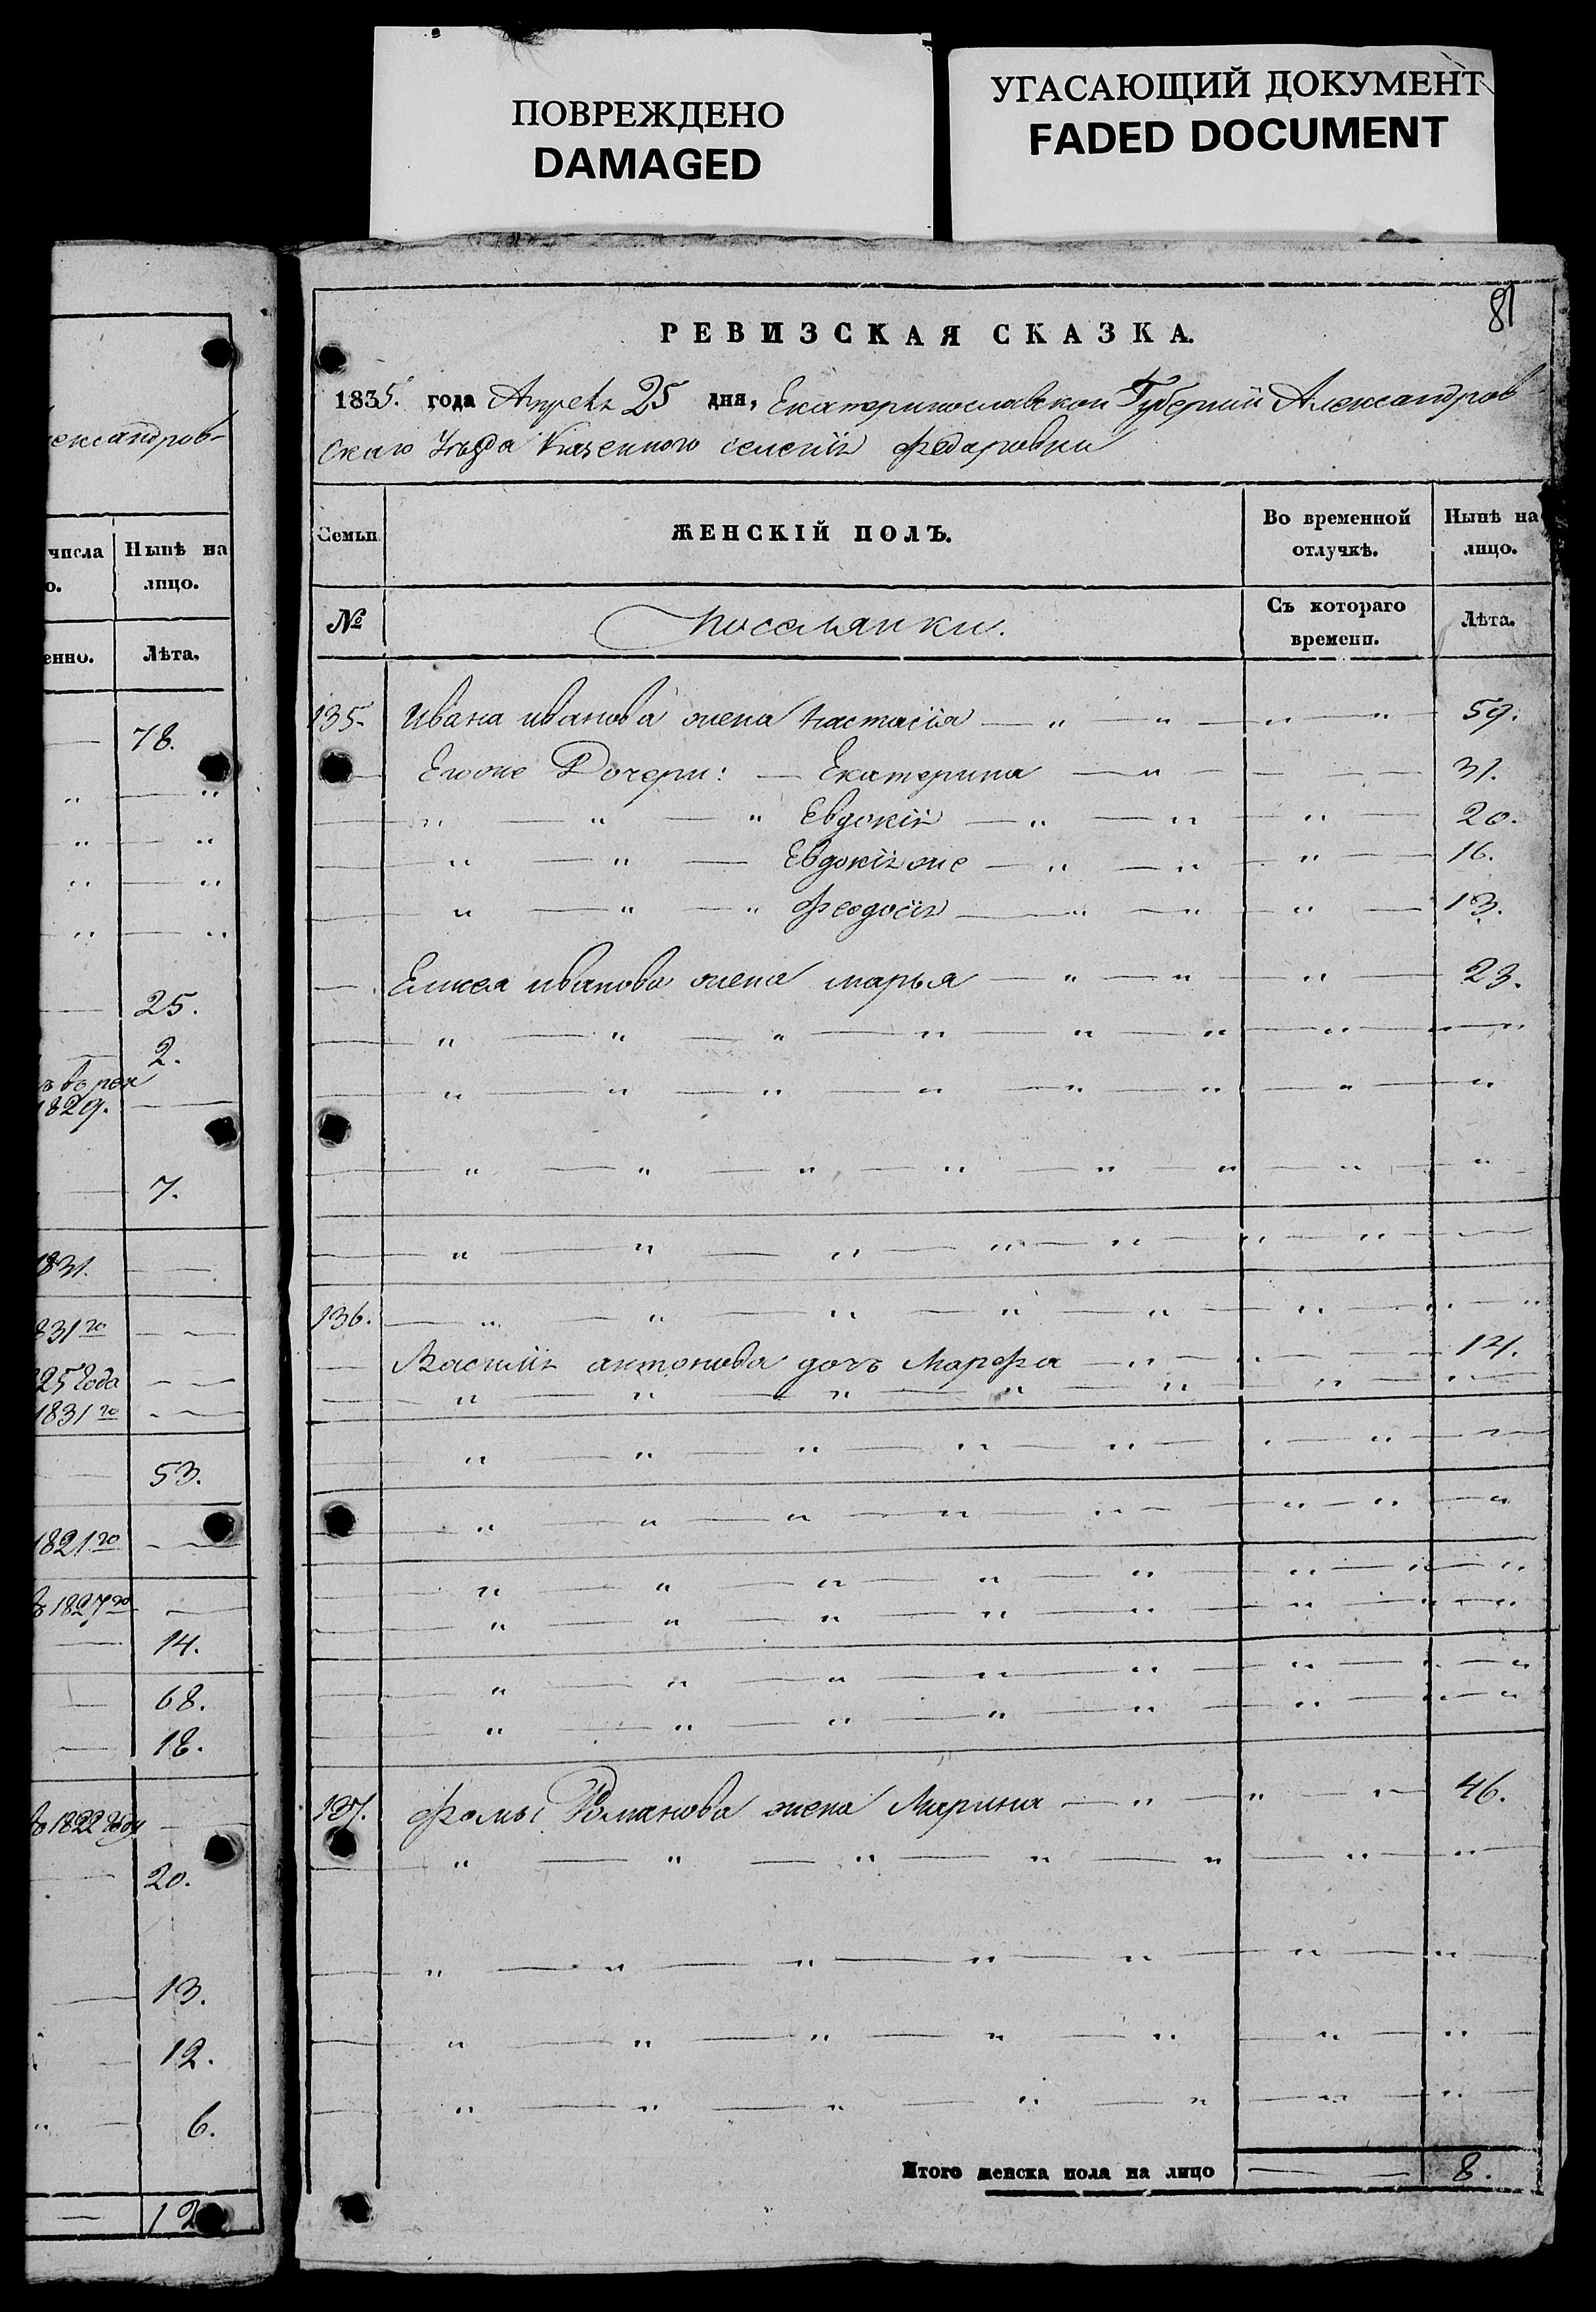 ПОВРЕЖДЕНО
DAMAGED
УГАСАЮЩИЙ ДОКУМЕНТ
FADED DOCUMENT
ександров-
числа Нынѣ на
о. лицо.
енно. Лѣта.
78.
25.
2.
1829.
7.
1831.
831го
25 года
1831го
53.
1821го
1827го
14.
68.
18.
1822 году
20.
13.
12.
6.
12
81
РЕВИЗСКАЯ СКАЗКА.
1835. года Апреля 25 дня, Екатеринославской Губернии Александров
скаго Уѣзда Казенного селенія Федоровки
Семьи ЖЕНСКІЙ ПОЛЪ. Во временной отлучкѣ. Нынѣ на лицо.
№ Поселянки. Съ котораго времени. Лѣта.
135. Ивана иванова жена Настасія — „ „ — „ — „ — 59.
Егоже Дочери: — Екатерина — „ — — — — 31.
„ — „ — „ Евдокія — „ — „ — „ — 20.
„ — „ — Евдокія же — „ — „ — „ — 16.
„ — „ — „ Феодосія — „ — „ — „ — 13.
Елисея иванова жена марья — „ — „ — „ — 23.
— „ — „ — „ — „ — „ — „ — „ — „
— „ — „ — „ — „ — „ — „ — „ — „
— „ — „ — „ — „ — „ — „ — „ — „
— „ — „ — „ — „ — „ — „ — „ —
136. — „ — „ — „ — „ — „ — „ — „ — „
Василія антонова дочь Марфа — „ — „ — — 14.
— „ — „ — „ — „ — „ — „ — „ —
— „ — „ — „ — „ — „ — „ — „ —
— „ — „ — „ — „ — „ — „ — „ — „
— „ — „ — „ — „ — „ — „ — „ — „
— „ — „ — „ — „ — „ — „ — „ — „
— „ — „ — „ — „ — „ — „ — „ — „
— „ — „ — „ — „ — „ — „ — „ — „
137. Фомы Романова жена Марина — „ — „ — „ — 46.
— „ — „ — „ — „ — „ — „ — „
— „ — „ — „ — „ — „ — „ — „ —
— „ — „ — „ — „ — „ — „ — „ —
— „ — „ — „ — „ — „ — „ — „ —
Итого женска пола на лицо — 8.